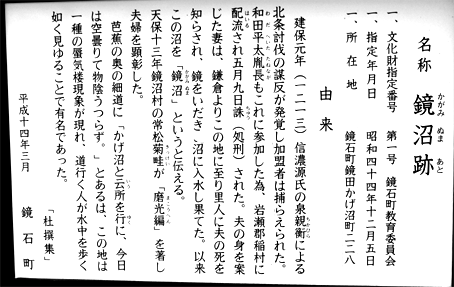 名称 鏡沼跡
かがみ ぬま あと
一、文化財指定番号 第一号 鏡石町教育委員会
一、指定年月日 昭和四十四年十二月五日
一、所在地 鏡石町鏡田かげ沼町二二八
由来
建保元年(一二一三)信濃源氏の泉親衡による
北条討伐の謀反が発覚し加盟者は捕らえられた。
和田平太胤長もこれに参加した為、岩瀬郡稲村に
配流され五月九日誅(処刑)された。夫の身を案
じた妻は、鎌倉よりこの地に至り里人に夫の死を
知らされ、鏡をいだき、沼に入水し果てた。以来
この沼を「鏡沼」というと伝える。
天保十三年鏡沼村の常松菊畦が「磨光編」を著し
夫婦を顕彰した。
芭蕉の奥の細道に「かげ沼と云所を行に、今日
は空曇りて物陰うつらず。」とあるは、この地は
一種の蜃気楼現象が現れ、道行く人が水中を歩く
如く見ゆることで有名であった。
「杜撰集」
平成十四年三月 鏡石町